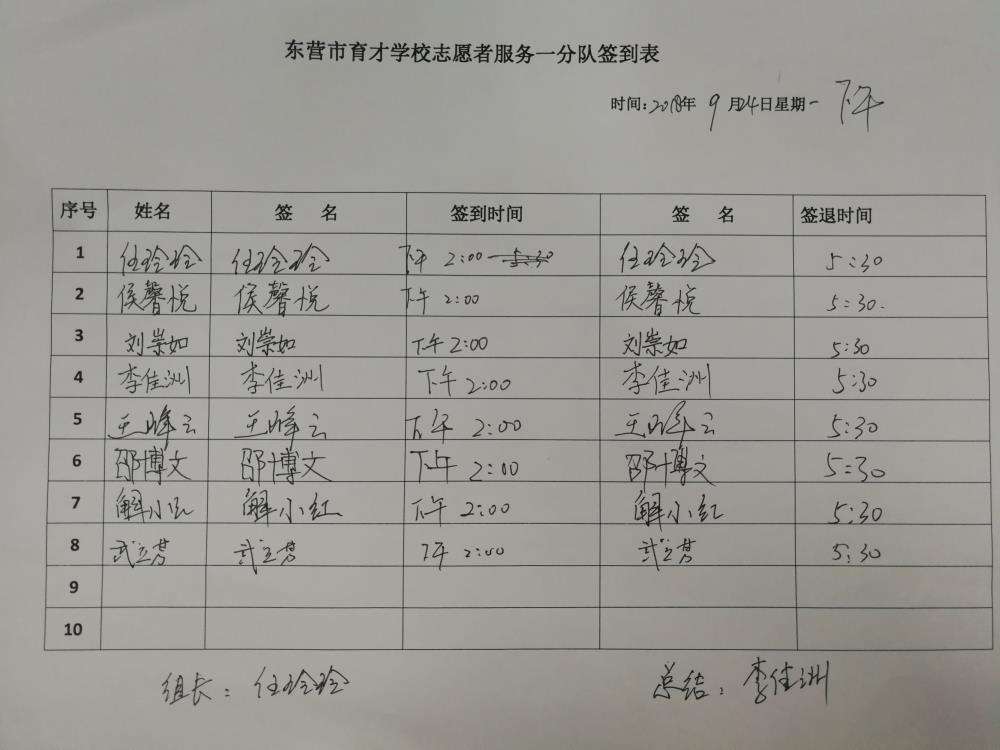 东营市育才学校志愿者服务一分队签到表
时间:2018年 9 月24日星期一 下午
序号 姓名 签 名 签到时间 签 名 签退时间
1 任玲玲 任玲玲 下午 2:00 任玲玲 5:30
2 侯馨悦 侯馨悦 下午 2:00 侯馨悦 5:30.
3 刘崇如 刘崇如 下午 2:00 刘崇如 5:30
4 李佳洲 李佳洲 下午 2:00 李佳洲 5:30
5 王峰云 王峰云 下午 2:00 王峰云 5:30
6 邵博文 邵博文 下午 2:00 邵博文 5:30
7 解小红 解小红 下午 2:00 解小红 5:30
8 下午 2:00 5:30
9
10
组长: 任玲玲 总结: 李佳洲